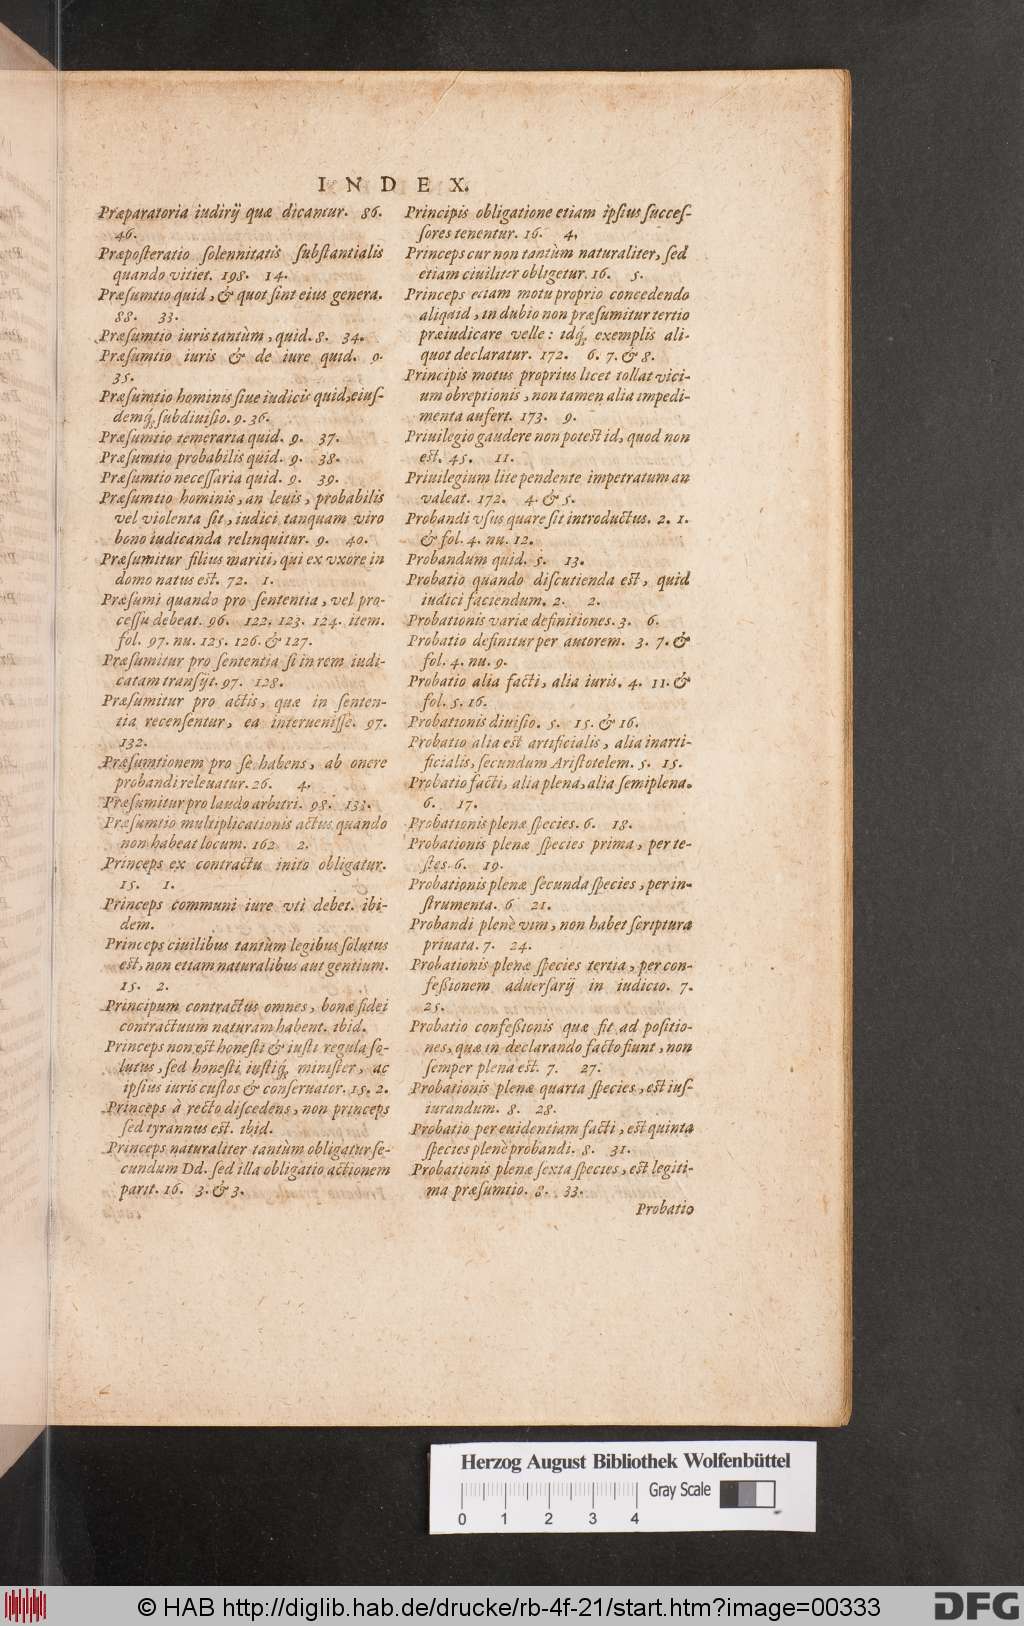 INDEX.
Præparatoria iudirij quæ dicantur. 86.
46.
Præposteratio solennitatis substantialis
quando vitiet. 195. 14.
Præsumtio quid, & quot sint eius genera.
88. 33.
Præsumtio iuris tantùm, quid. 8. 34.
Præsumtio iuris & de iure quid. 9.
35.
Præsumtio hominis siue iudicis quid, eius-
demq́; subdiuisio. 9. 36.
Præsumtio temeraria quid. 9. 37.
Præsumtio probabilis quid. 9. 38.
Præsumtio necessaria quid. 9. 39.
Præsumtio hominis, an leuis, probabilis
vel violenta sit, iudici tanquam viro
bono iudicanda relinquitur. 9. 40.
Præsumitur filius mariti, qui ex vxore in
domo natus est. 72. 1.
Præsumi quando pro sententia, vel pro-
cessu debeat. 96. 122. 123. 124. item.
fol. 97. nu. 125. 126. & 127.
Præsumitur pro sententia si in rem iudi-
catam transijt. 97. 128.
Præsumitur pro actis, quæ in senten-
tia recensentur, ea interuenisse. 97.
132.
Præsumtionem pro se habens, ab onere
probandi releuatur. 26. 4.
Præsumitur pro laudo arbitri. 98. 133.
Præsumtio multiplicationis actus quando
non habeat locum. 162 2.
Princeps ex contractu inito obligatur.
15. 1.
Princeps communi iure vti debet. ibi-
dem.
Princeps ciuilibus tantùm legibus solutus
est, non etiam naturalibus aut gentium.
15. 2.
Principum contractus omnes, bonæ fidei
contractuum naturam habent. ibid.
Princeps non est honesti & iusti regula so-
lutus, sed honesti, iustiq́; minister, ac
ipsius iuris custos & conseruator. 15. 2.
Princeps à recto discedens, non princeps
sed tyrannus est. ibid.
Princeps naturaliter tantùm obligatur se-
cundum Dd. sed illa obligatio actionem
parit. 16. 3. & 3.
Principis obligatione etiam ipsius succes-
sores tenentur. 16. 4.
Princeps cur non tantùm naturaliter, sed
etiam ciuiliter obligetur. 16. 5.
Princeps etiam motu proprio concedendo
aliquid, in dubio non præsumitur tertio
præiudicare velle: idq́; exemplis ali-
quot declaratur. 172. 6. 7. & 8.
Principis motus proprius licet tollat vici-
um obreptionis, non tamen alia impedi-
menta aufert. 173. 9.
Priuilegio gaudere non potest id, quod non
est. 45. 11.
Priuilegium lite pendente impetratum an
valeat. 172. 4. & 5.
Probandi vsus quare sit introductus. 2. 1.
& fol. 4. nu. 12.
Probandum quid. 5. 13.
Probatio quando discutienda est, quid
iudici faciendum. 2. 2.
Probationis variæ definitiones. 3. 6.
Probatio definitur per autorem. 3. 7. &
fol. 4. nu. 9.
Probatio alia facti, alia iuris. 4. 11. &
fol. 5. 16.
Probationis diuisio. 5. 15. & 16.
Probatio alia est artificialis, alia inarti-
ficialis, secundum Aristotelem. 5. 15.
Probatio facti, alia plena, alia semiplena.
6. 17.
Probationis plenæ species. 6. 18.
Probationis plenæ species prima, per te-
stes. 6. 19.
Probationis plenæ secunda species, per in-
strumenta. 6 21.
Probandi plenè vim, non habet scriptura
priuata. 7. 24.
Probationis plenæ species tertia, per con-
fessionem aduersarij in iudicio. 7.
25.
Probatio confessionis quæ fit ad positio-
nes, quæ in declarando facto fiunt, non
semper plena est. 7. 27.
Probationis plenæ quarta species, est ius-
iurandum. 8. 28.
Probatio per euidentiam facti, est quinta
species plenè probandi. 8. 31.
Probationis plenæ sexta species, est legiti-
ma præsumtio. 8. 33.
Probatio
Herzog August Bibliothek Wolfenbüttel
Gray Scale
0 1 2 3 4
© HAB http://diglib.hab.de/drucke/rb-4f-21/start.htm?image=00333
DFG